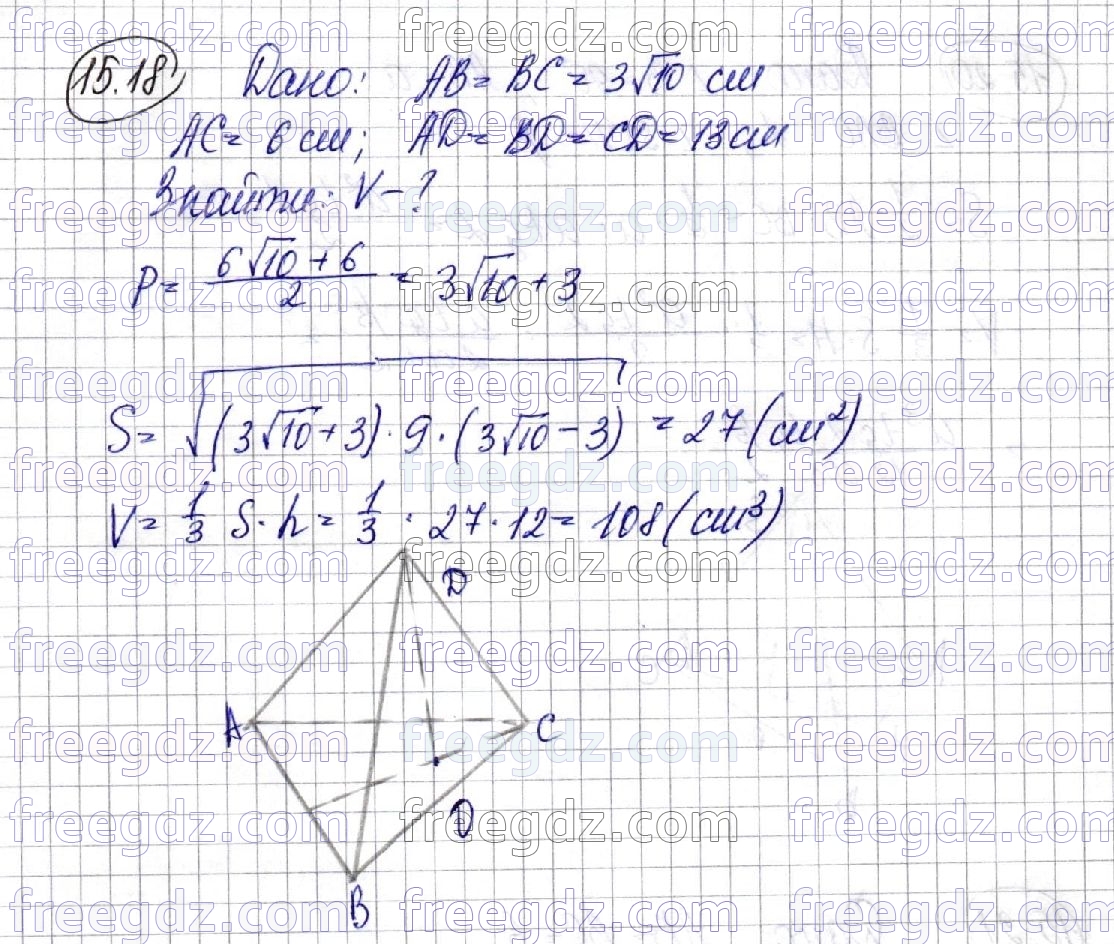 15.18 Дано: AB = BC = 3√10 см
AC = 6 см; AD = BD = CD = 13 см
Знайти: V - ?
P = (6√10 + 6)/2 = 3√10 + 3
S = √((3√10 + 3) · 9 · (3√10 - 3)) = 27 (см²)
V = 1/3 S · h = 1/3 · 27 · 12 = 108 (см³)
D
A
C
O
B
freegdz.com